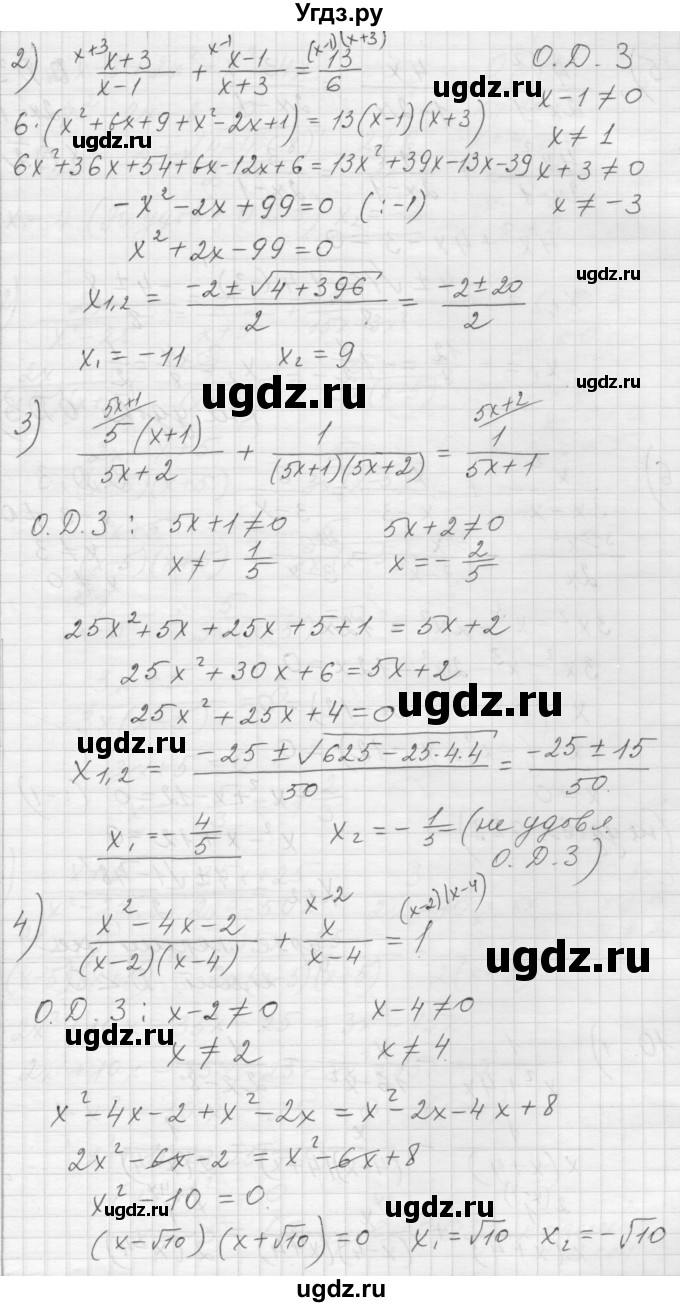 Угдз.ру
2) x+3 (x+3)/(x-1) + x-1 (x-1)/(x+3) = (x-1)(x+3) 13/6 О.Д.З
x-1≠0
6·(x²+6x+9+x²-2x+1) = 13(x-1)(x+3)
x≠1
6x²+36x+54+6x-12x+6=13x²+39x-13x-39 x+3≠0
-x²-2x+99=0 (:-1) x≠-3
x²+2x-99=0
ugdz.ru
x₁,₂ = (-2±√(4+396))/2 = (-2±20)/2
ugdz.ru
x₁=-11 x₂=9
ugdz.ru
ugdz.ru
3) 5x+1 5(x+1)/(5x+2) + 1/((5x+1)(5x+2)) = 5x+2 1/(5x+1)
О.Д.З: 5x+1≠0 5x+2≠0
x≠-1/5 x=-2/5
25x²+5x+25x+5+1=5x+2
25x²+30x+6=5x+2
25x²+25x+4=0
ugdz.ru
ugdz.ru
x₁,₂ = (-25±√(625-25·4·4))/50 = (-25±15)/50.
x₁=-4/5 x₂=-1/5 (не удовл.
О.Д.З)
ugdz.ru
4) (x²-4x-2)/((x-2)(x-4)) + x-2 x/(x-4) = 1 (x-2)(x-4)
ugdz.ru
О.Д.З: x-2≠0 x-4≠0
x≠2 x≠4
ugdz.ru
ugdz.ru
x²-4x-2+x²-2x=x²-2x-4x+8
2x²-6x-2=x²-6x+8
x²-10=0.
ugdz.ru
ugdz.ru
(x-√10)(x+√10)=0 x₁=√10 x₂=-√10
ugdz.ru